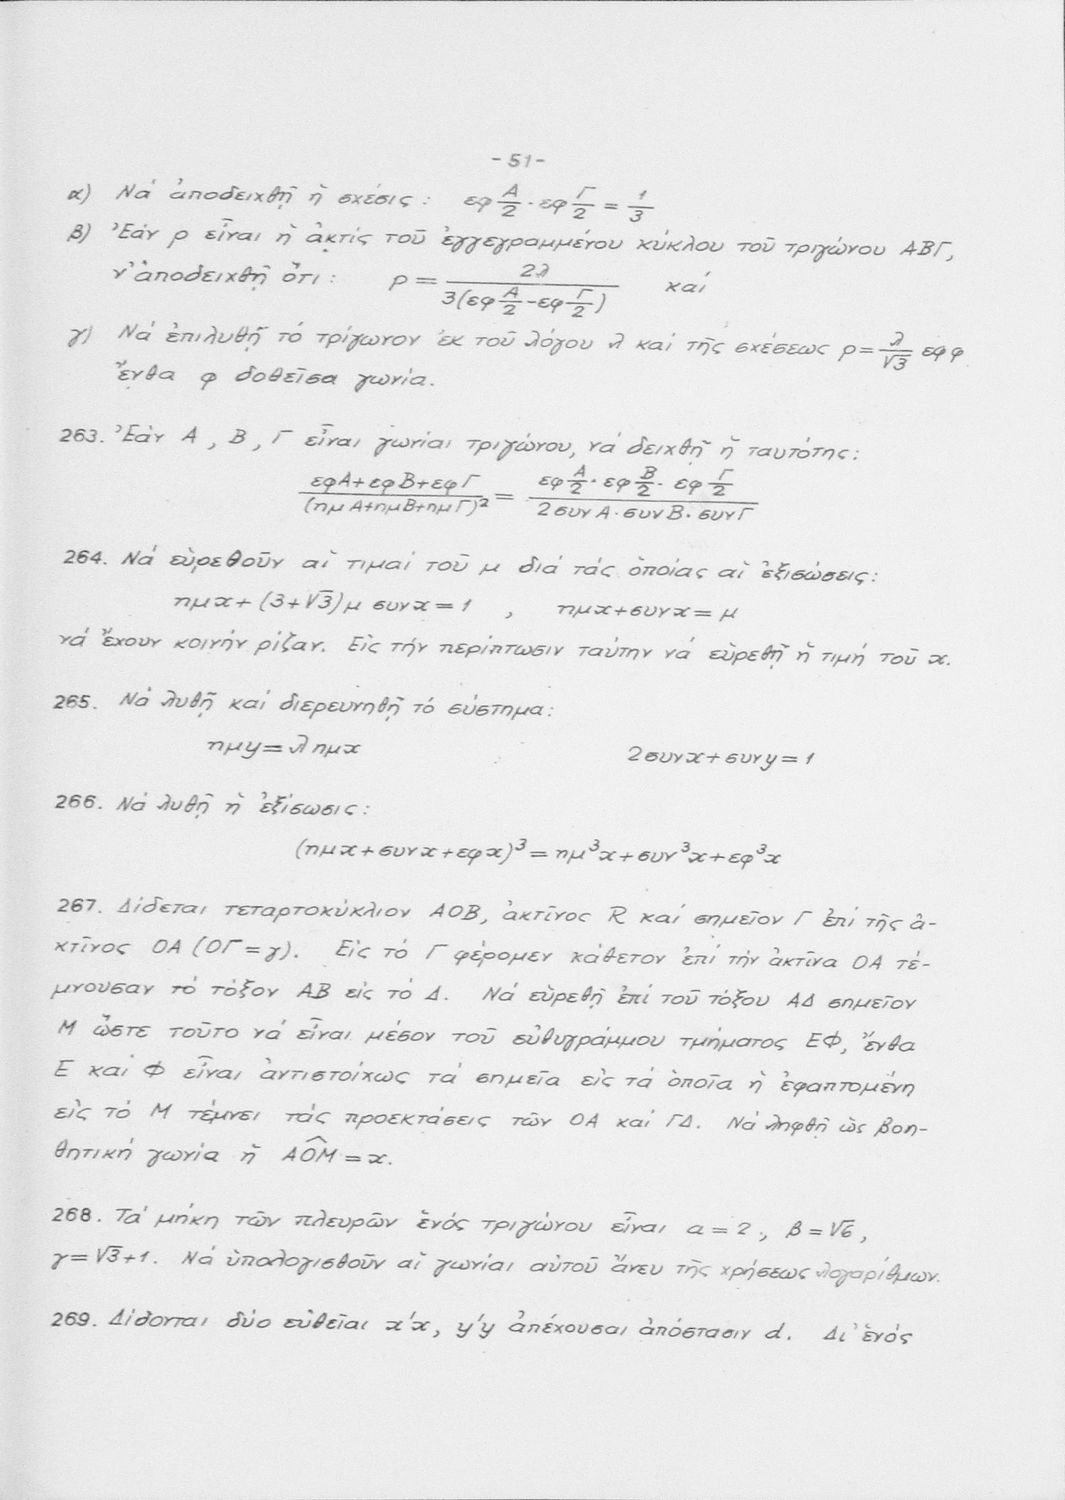 -51-
α) Νά ἀποδειχθῇ ἡ σχέσις : εφ A/2 · εφ Γ/2 = 1/3
β) Ἐάν ρ εἶναι ἡ ἀκτίς τοῦ ἐγγεγραμμένου κύκλου τοῦ τριγώνου ΑΒΓ,
ν' ἀποδειχθῇ ὅτι : ρ = 2λ / 3(εφ A/2 - εφ Γ/2) καί
γ) Νά ἐπιλυθῇ τό τρίγωνον ἐκ τοῦ λόγου λ καί τῆς σχέσεως ρ = λ/√3 εφφ
ἔνθα φ δοθεῖσα γωνία.
263. Ἐάν Α, Β, Γ εἶναι γωνίαι τριγώνου, νά δειχθῇ ἡ ταυτότης:
(εφΑ+εφΒ+εφΓ) / (ημΑ+ημΒ+ημΓ)² = (εφ A/2 · εφ B/2 · εφ Γ/2) / (2συνΑ·συνΒ·συνΓ)
264. Νά εὑρεθοῦν αἱ τιμαί τοῦ μ διά τάς ὁποίας αἱ ἐξισώσεις:
ημx + (3+√3)μ συνx = 1 , ημx+συνx = μ
νά ἔχουν κοινήν ρίζαν. Εἰς τήν περίπτωσιν ταύτην νά εὑρεθῇ ἡ τιμή τοῦ x.
265. Νά λυθῇ καί διερευνηθῇ τό σύστημα:
ημy = λ ημx 2συνx+συνy = 1
266. Νά λυθῇ ἡ ἐξίσωσις:
(ημx+συνx+εφx)³ = ημ³x+συν³x+εφ³x
267. Δίδεται τεταρτοκύκλιον ΑΟΒ, ἀκτῖνος R καί σημεῖον Γ ἐπί τῆς ἀ-
κτῖνος ΟΑ (ΟΓ = γ). Εἰς τό Γ φέρομεν κάθετον ἐπί τήν ἀκτῖνα ΟΑ τέ-
μνουσαν τό τόξον ΑΒ εἰς τό Δ. Νά εὑρεθῇ ἐπί τοῦ τόξου ΑΔ σημεῖον
Μ ὥστε τοῦτο νά εἶναι μέσον τοῦ εὐθυγράμμου τμήματος ΕΦ, ἔνθα
Ε καί Φ εἶναι ἀντιστοίχως τά σημεῖα εἰς τά ὁποῖα ἡ ἐφαπτομένη
εἰς τό Μ τέμνει τάς προεκτάσεις τῶν ΟΑ καί ΓΔ. Νά ληφθῇ ὡς βοη-
θητική γωνία ἡ ΑÔΜ = x.
268. Τά μήκη τῶν πλευρῶν ἑνός τριγώνου εἶναι α = 2, β = √6,
γ = √3+1. Νά ὑπολογισθοῦν αἱ γωνίαι αὐτοῦ ἄνευ τῆς χρήσεως λογαρίθμων.
269. Δίδονται δύο εὐθεῖαι x'x, y'y ἀπέχουσαι ἀπόστασιν d. Δι' ἑνός